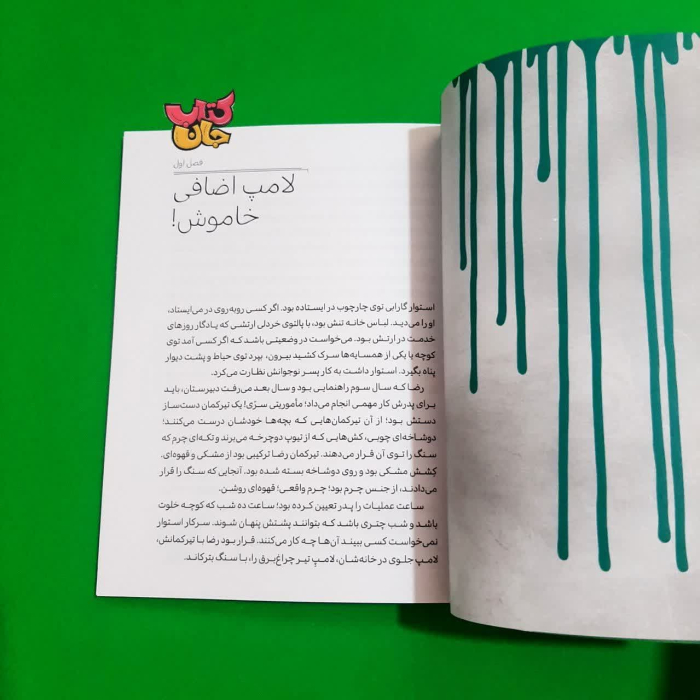 کتاب
جان
فصل اول
لامپ اضافی
خاموش!
استوار گارابی توی چارچوب در ایستاده بود. اگر کسی روبه‌روی در می‌ایستاد،
او را می‌دید. لباس خانه تنش بود، با پالتوی خردلی ارتشی که یادگار روزهای
خدمت در ارتش بود. می‌خواست در وضعیتی باشد که اگر کسی آمد توی
کوچه یا یکی از همسایه‌ها سرک کشید بیرون، بپرد توی حیاط و پشت دیوار
پناه بگیرد. استوار داشت به کار پسر نوجوانش نظارت می‌کرد.
رضا که سال سوم راهنمایی بود و سال بعد می‌رفت دبیرستان، باید
برای پدرش کار مهمی انجام می‌داد؛ مأموریتی سرّی! یک تیرکمان دست‌ساز
دستش بود؛ از آن تیرکمان‌هایی که بچه‌ها خودشان درست می‌کنند؛
دوشاخه‌ای چوبی، کش‌هایی که از تیوپ دوچرخه می‌برند و تکه‌ای چرم که
سنگ را توی آن قرار می‌دهند. تیرکمان رضا ترکیبی بود از مشکی و قهوه‌ای.
کِشش مشکی بود و روی دوشاخه بسته شده بود. آنجایی که سنگ را قرار
می‌دادند، از جنس چرم بود؛ چرم واقعی؛ قهوه‌ای روشن.
ساعت عملیات را پدر تعیین کرده بود؛ ساعت ده شب که کوچه خلوت
باشد و شب چتری باشد که بتوانند پشتش پنهان شوند. سرکار استوار
نمی‌خواست کسی ببیند آن‌ها چه کار می‌کنند. قرار بود رضا با تیرکمانش،
لامپ جلوی در خانه‌شان، لامپِ تیر چراغ‌برق را، با سنگ بترکاند.